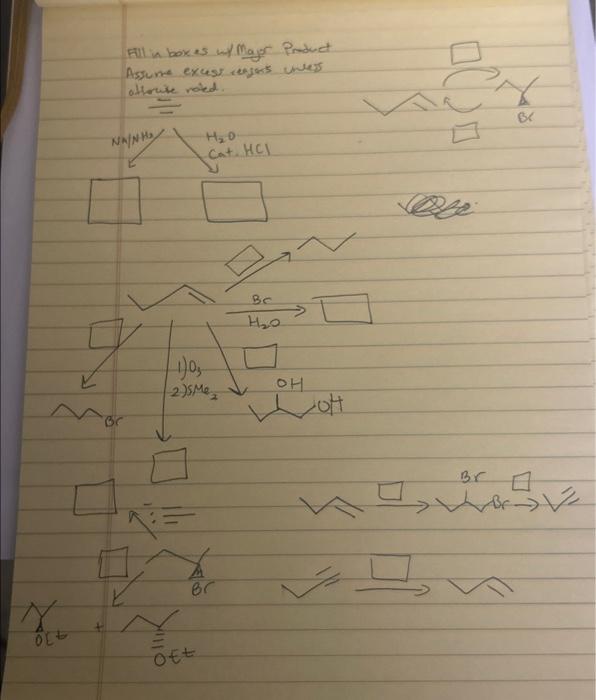 Fill in boxes w/ Major Product
Assume excess reagents unless
otherwise noted.
Br
Na/NH3
H2O
Cat. HCl
Br
H2O
1) O3
2) SMe2
OH
OH
Br
Br
Br
Br
OEt
+
OEt